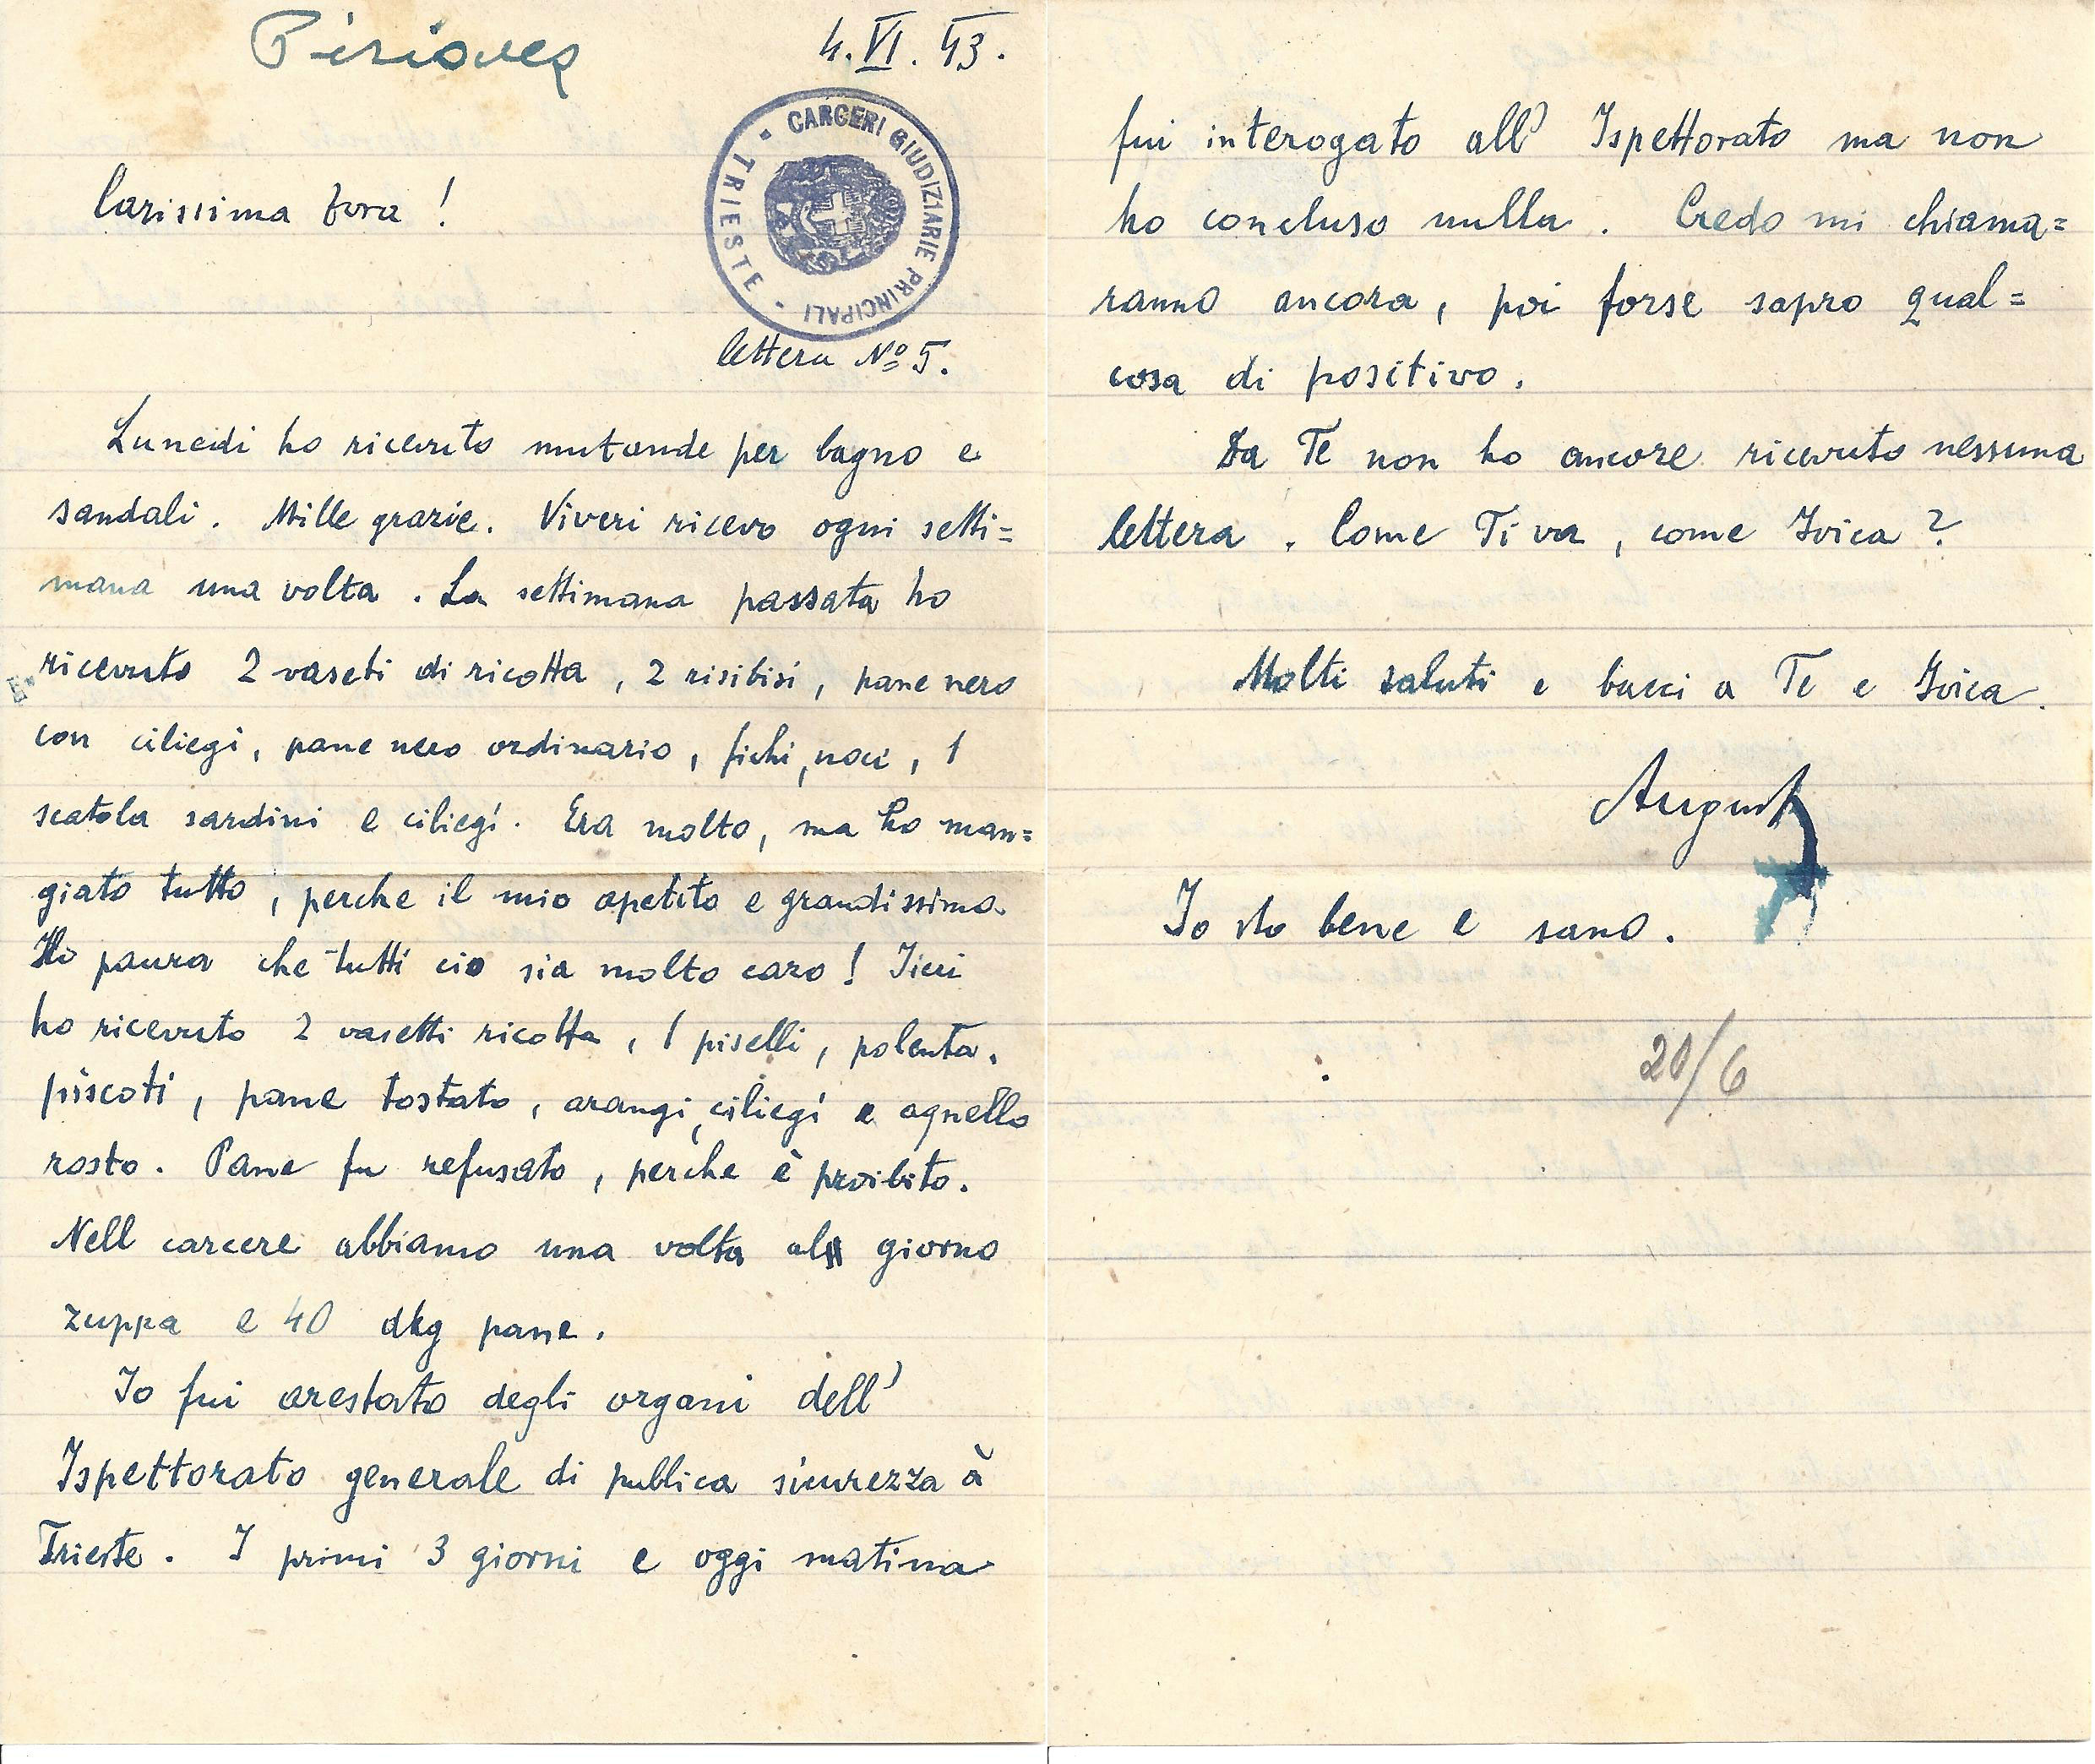 4.VI.43.
CARCERI GIUDIZIARIE PRINCIPALI
TRIESTE
Carissima Zora !
lettera Nº 5.
Lunedi ho ricevuto mutande per bagno e
sandali. Mille grazie. Viveri ricevo ogni setti=
mana una volta. La settimana passata ho
ricevuto 2 vaseti di ricotta, 2 risibisi, pane nero
con ciliegi, pane nero ordinario, fichi, noci, 1
scatola sardini e ciliegi. Era molto, ma ho man=
giato tutto, perche il mio apetito e grandissimo.
Ho paura che tutti cio sia molto caro! Jieri
ho ricevuto 2 vasetti ricotta, 1 piselli, polenta,
piscoti, pane tostato, arangi, ciliegi e agnello
rosto. Pane fu refusato, perche è proibito.
Nell carcere abbiamo una volta al giorno
zuppa e 40 dkg pane.
Io fui arestato degli organi dell'
Ispettorato generale di publica sicurezza à
Trieste. I primi 3 giorni e oggi matina
fui interogato all' Ispettorato ma non
ho concluso nulla. Credo mi chiama=
ranno ancora, poi forse sapro qual=
cosa di positivo.
Da Te non ho ancore ricevuto nessuna
lettera. Come Ti va, come Ivica?
Molti saluti e bacci a Te e Ivica.
August
Io sto bene e sano.
20/6